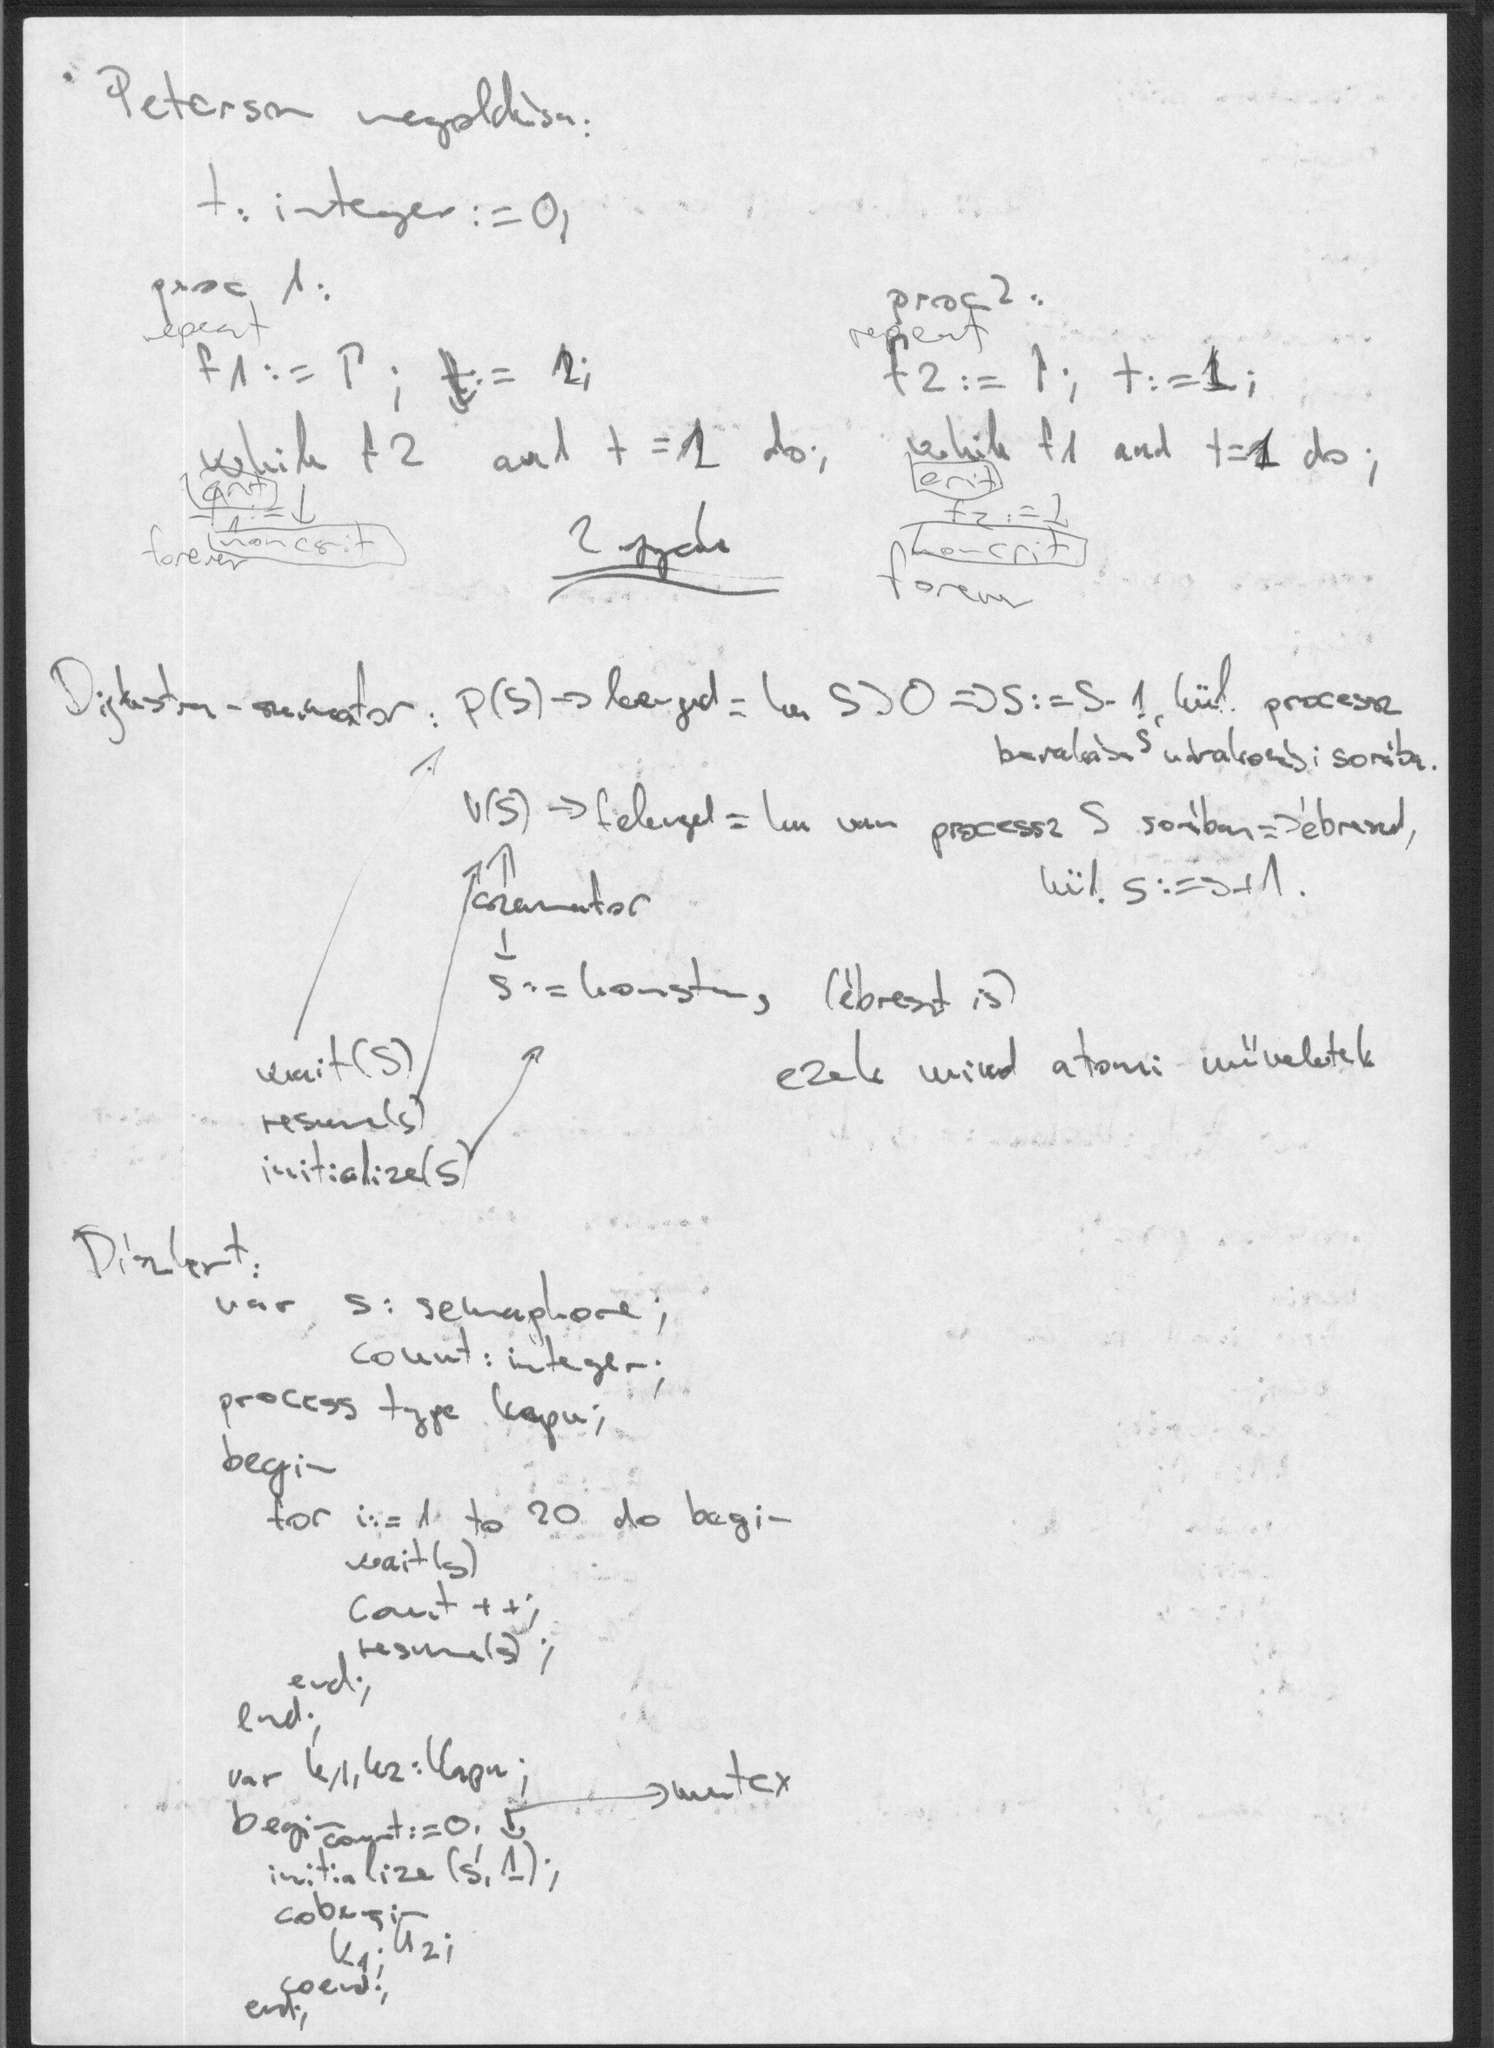 Peterson megoldása:
t: integer := 0;
proc 1:
repeat
f1 := ↑; t := 2;
while f2 and t = 2 do;
crit
f1 := ↓
noncrit
forever
proc 2:
repeat
f2 := ↑; t := 1;
while f1 and t=1 do;
crit
f2 := ↓
noncrit
forever
2 
Dijkstra-szemafor: P(S) → leenged = ha S>0 => S:=S-1, kül. processz
berakása S várakozási sorába.
V(S) → felenged = ha van processz S sorában => ébreszt,
kül. S:=S+1.
szemafor
S:= konstans, (ébreszt is)
ezek mind atomi műveletek
wait(S)
resume(s)
initialize(S)
Díszkert:
var s: semaphore;
count: integer;
process type kapu;
begin
for i:=1 to 20 do begin
wait(s)
count ++;
resume(s);
end;
end;
var k1, k2: kapu;
→ mutex
begin count:=0;
initialize (s, 1);
cobegin
k1; k2;
coend;
end;